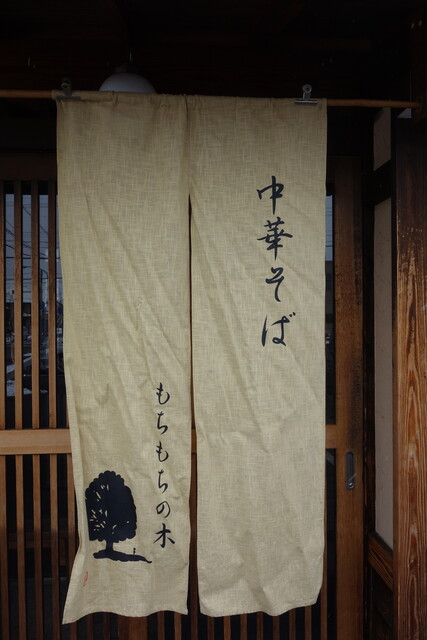 中華そば
もちもちの木